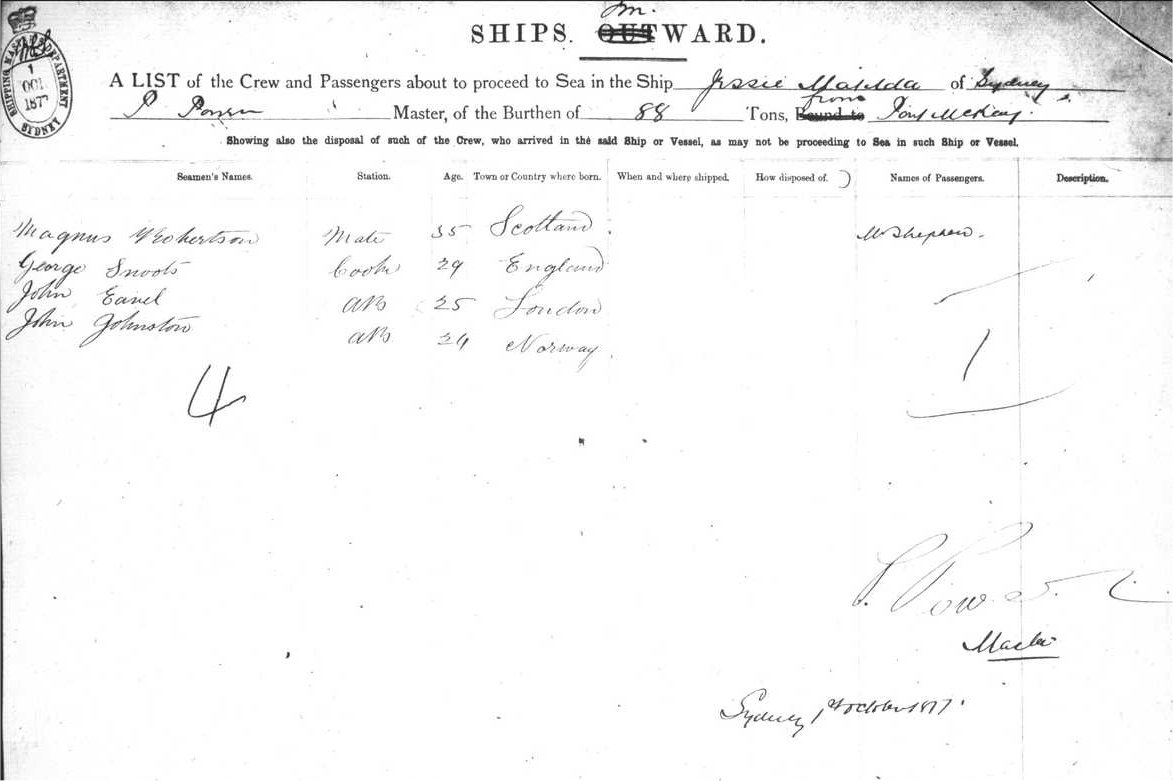 In
SHIPS OUTWARD.
A LIST of the Crew and Passengers about to proceed to Sea in the Ship Jessie Matilda of Sydney
P Power Master, of the Burthen of 88 Tons, Bound to from Port McKay
Showing also the disposal of such of the Crew, who arrived in the said Ship or Vessel, as may not be proceeding to Sea in such Ship or Vessel.
Seamen's Names. Station. Age. Town or Country where born. When and where shipped. How disposed of. Names of Passengers. Description.
Magnus Robertson Mate 35 Scotland Mr
George Cook 29 England
John AB 25 London
John Johnston AB 24 Norway
4 1
P. Power
Master
Sydney 1st October 1877
SHIPPING MASTER'S DEPARTMENT
1
OCT.
1877
SYDNEY